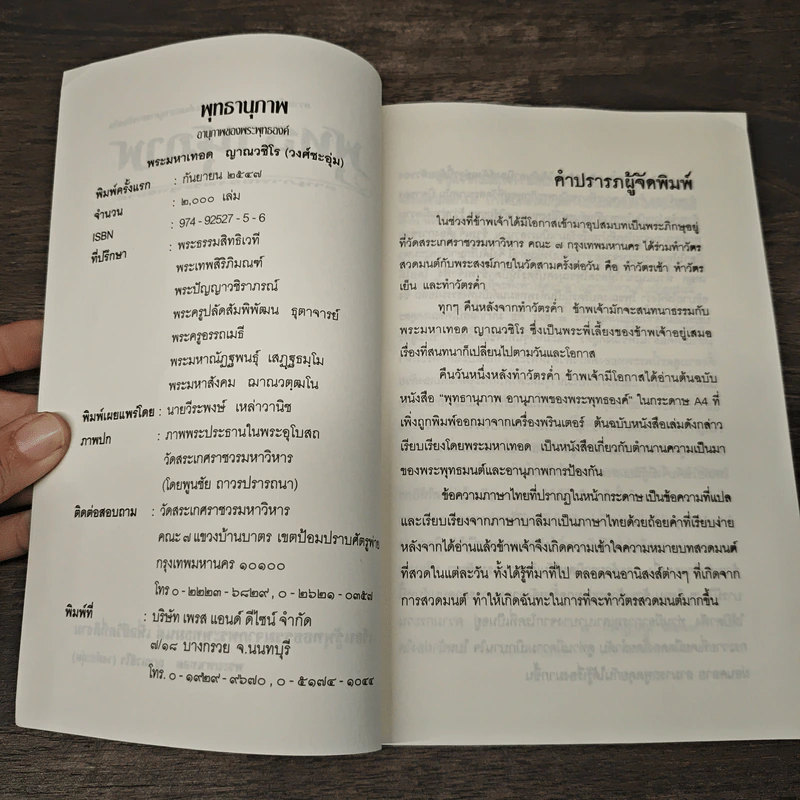 พุทธานุภาพ
อานุภาพของพระพุทธองค์
พระมหาเทอด ญาณวชิโร (วงศ์ชะอุ่ม)
พิมพ์ครั้งแรก : กันยายน ๒๕๔๗
จำนวน : ๒,๐๐๐ เล่ม
ISBN : 974 - 92527 - 5 - 6
ที่ปรึกษา : พระธรรมสิทธิเวที
พระเทพสิริภิมณฑ์
พระปัญญาวชิราภรณ์
พระครูปลัดสัมพิพัฒน ธุตาจารย์
พระครูอรรถเมธี
พระมหาณัฏฐพนธุ์ เสฏฺฐธมฺโม
พระมหาสังคม ฌาณวตฺฒโน
พิมพ์เผยแพร่โดย : นายวีระพงษ์ เหล่าวานิช
ภาพปก : ภาพพระประธานในพระอุโบสถ
วัดสระเกศราชวรมหาวิหาร
(โดยพูนชัย ถาวรปรารถนา)
ติดต่อสอบถาม : วัดสระเกศราชวรมหาวิหาร
คณะ ๗ แขวงบ้านบาตร เขตป้อมปราบศัตรูพ่าย
กรุงเทพมหานคร ๑๐๑๐๐
โทร ๐ - ๒๒๒๓ - ๖๘๒๙ , ๐ - ๒๖๒๑ - ๐๓๕๗
พิมพ์ที่ : บริษัท เพรส แอนด์ ดีไซน์ จำกัด
๗/๑๘ บางกรวย จ.นนทบุรี
โทร. ๐ - ๑๙๒๙ - ๙๖๗๐ , ๐ - ๕๑๗๔ - ๑๐๔๔
คำปรารภผู้จัดพิมพ์
ในช่วงที่ข้าพเจ้าได้มีโอกาสเข้ามาอุปสมบทเป็นพระภิกษุอยู่
ที่วัดสระเกศราชวรมหาวิหาร คณะ ๗ กรุงเทพมหานคร ได้ร่วมทำวัตร
สวดมนต์กับพระสงฆ์ภายในวัดสามครั้งต่อวัน คือ ทำวัตรเช้า ทำวัตร
เย็น และทำวัตรค่ำ
ทุกๆ คืนหลังจากทำวัตรค่ำ ข้าพเจ้ามักจะสนทนาธรรมกับ
พระมหาเทอด ญาณวชิโร ซึ่งเป็นพระพี่เลี้ยงของข้าพเจ้าอยู่เสมอ
เรื่องที่สนทนาก็เปลี่ยนไปตามวันและโอกาส
คืนวันหนึ่งหลังทำวัตรค่ำ ข้าพเจ้ามีโอกาสได้อ่านต้นฉบับ
หนังสือ "พุทธานุภาพ อานุภาพของพระพุทธองค์" ในกระดาษ A4 ที่
เพิ่งถูกพิมพ์ออกมาจากเครื่องพรินเตอร์ ต้นฉบับหนังสือเล่มดังกล่าว
เรียบเรียงโดยพระมหาเทอด เป็นหนังสือเกี่ยวกับตำนานความเป็นมา
ของพระพุทธมนต์และอานุภาพการป้องกัน
ข้อความภาษาไทยที่ปรากฏในหน้ากระดาษ เป็นข้อความที่แปล
และเรียบเรียงจากภาษาบาลีมาเป็นภาษาไทยด้วยถ้อยคำที่เรียบง่าย
หลังจากได้อ่านแล้วข้าพเจ้าจึงเกิดความเข้าใจความหมายบทสวดมนต์
ที่สวดในแต่ละวัน ทั้งได้รู้ที่มาที่ไป ตลอดจนอานิสงส์ต่างๆ ที่เกิดจาก
การสวดมนต์ ทำให้เกิดฉันทะในการที่จะทำวัตรสวดมนต์มากขึ้น